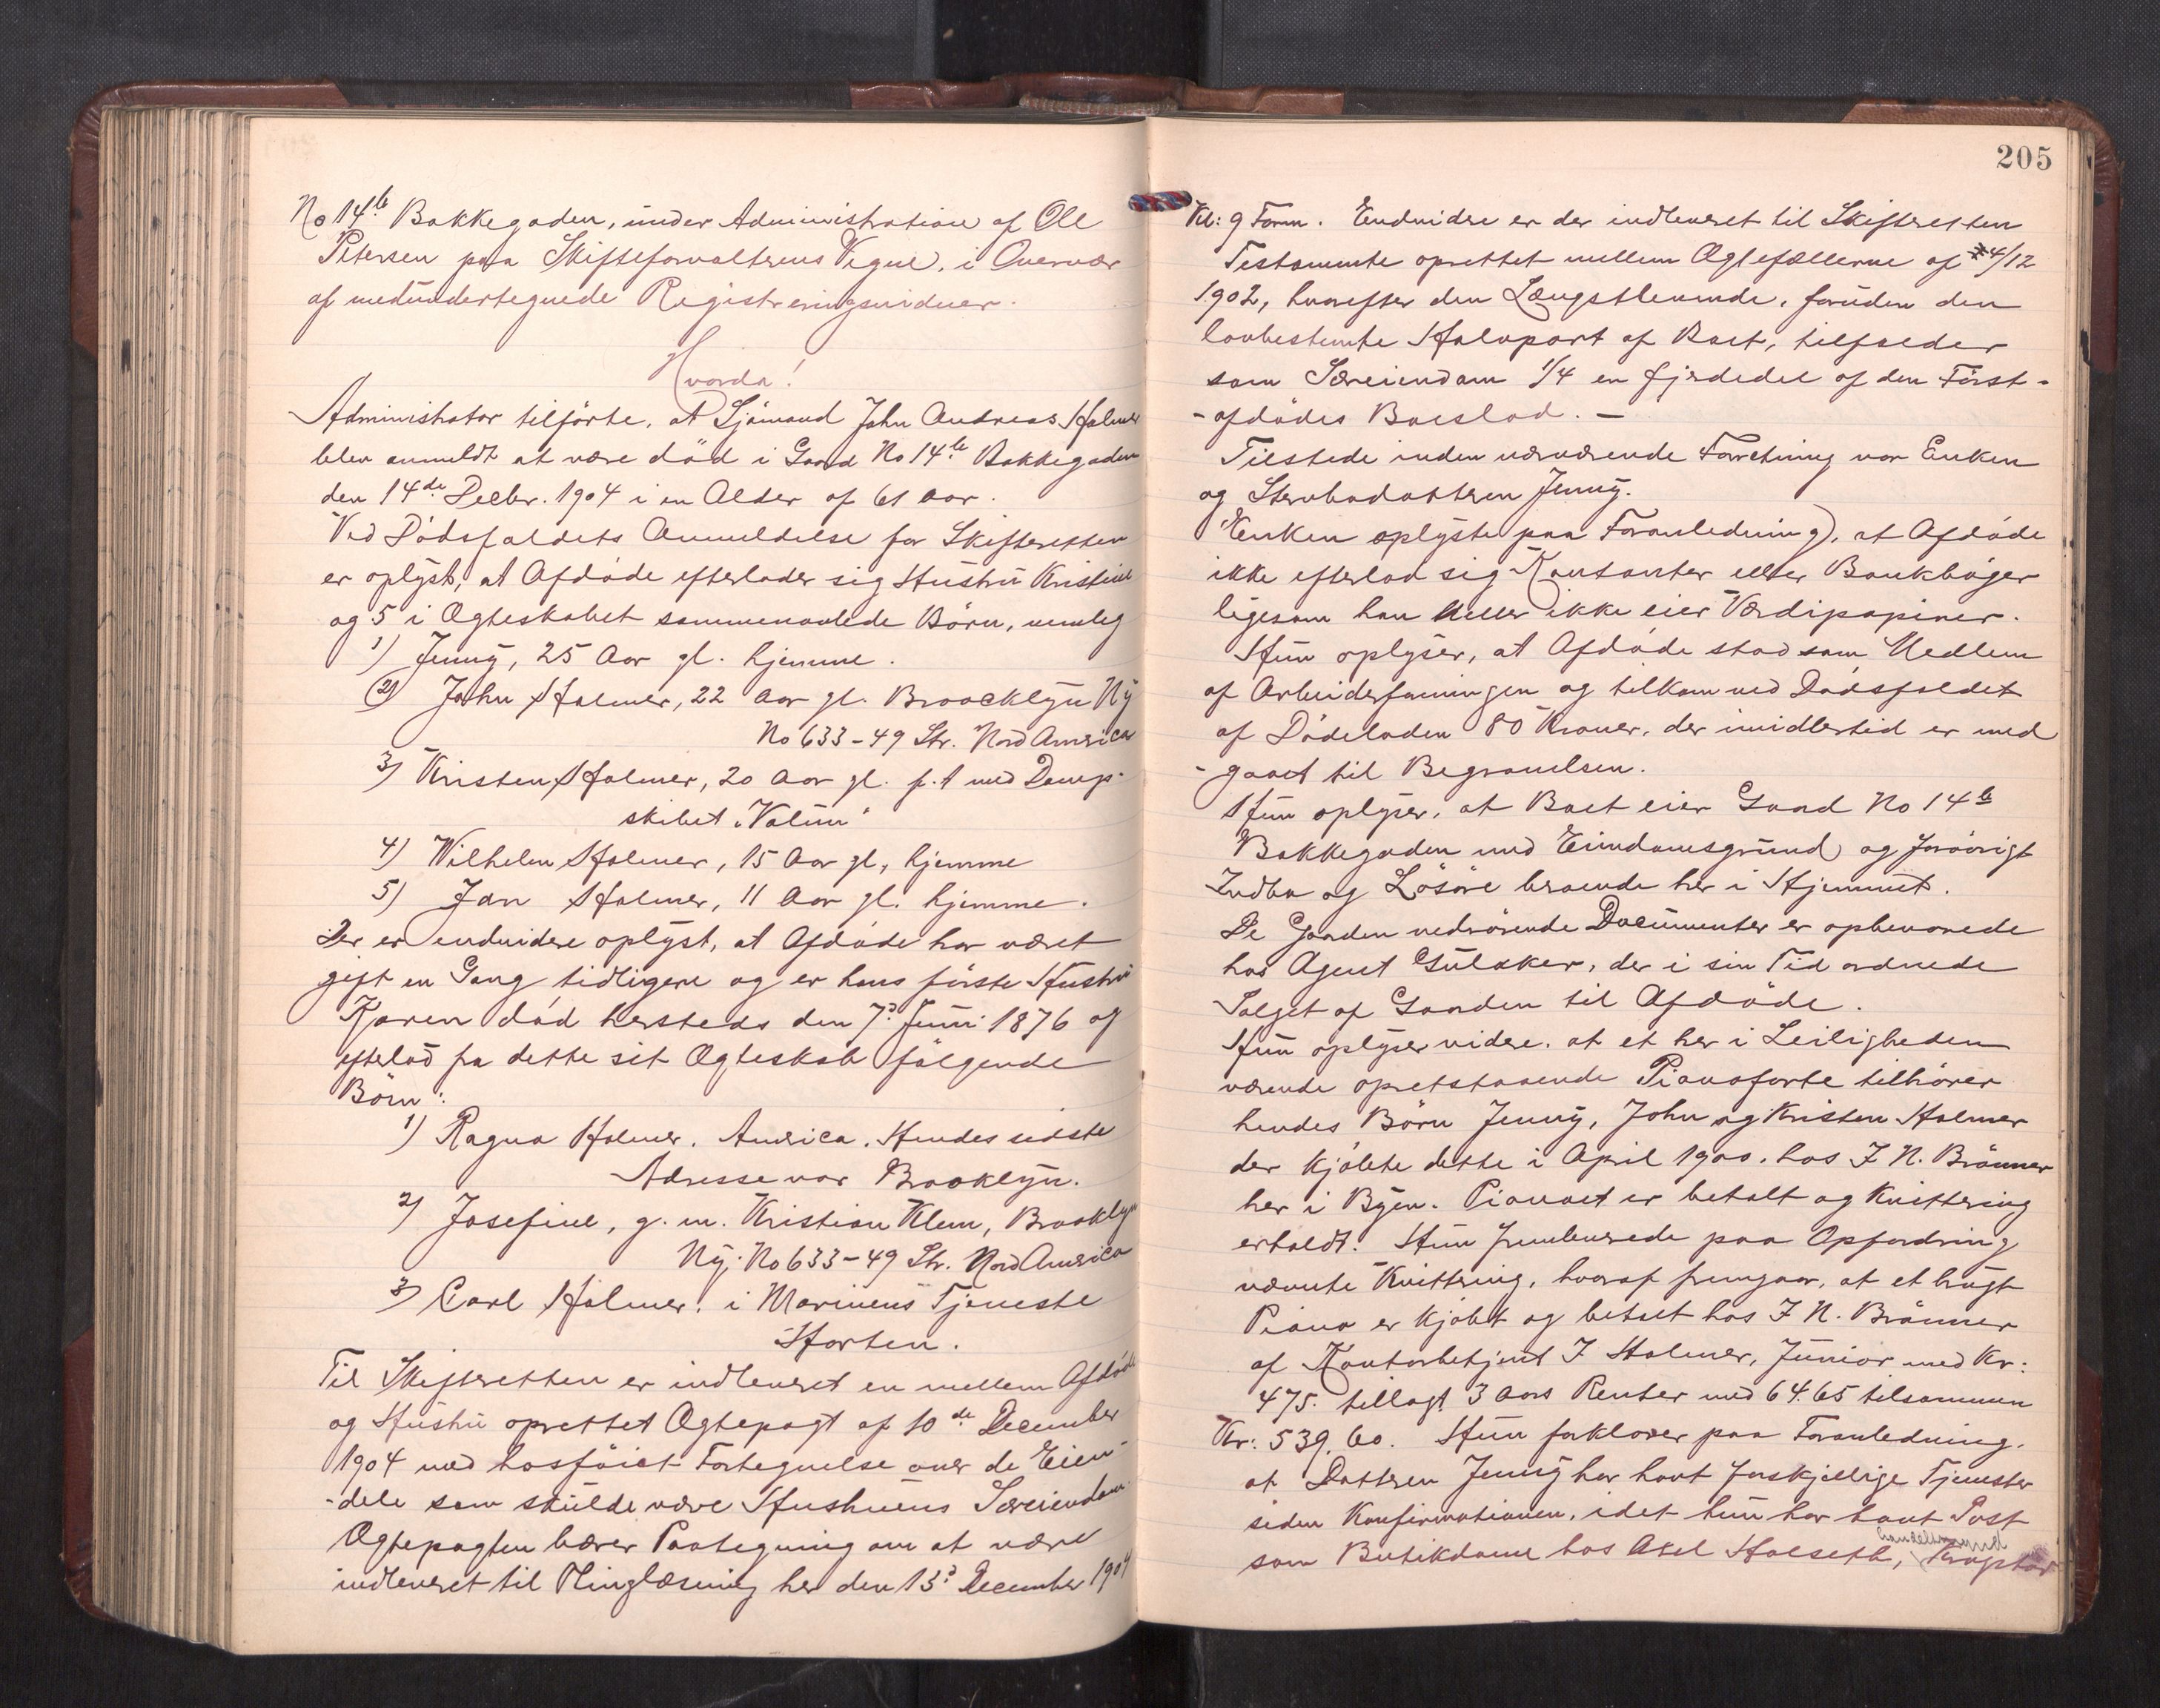 No 14b Bakkegaden, under Administration af Ole
Petersen paa Skifteforvalterens Vegne, i Overvær
af medundertegnede Registreringsvidner.
Hvorda!
Administrator tilførte, at Sjømand John Andreas Holmer
blev anmeldt at være død i Gaard No 14b Bakkegaden
den 14de Decbr. 1904 i en Alder af 61 Aar.
Ved Dødsfaldets Anmeldelse for Skifteretten
er oplyst, at Afdøde efterlader sig Hustru Kristine
og 5 i Ægteskabet sammenavlede Børn, nemlig
1) Jenny, 25 Aar gl. hjemme.
2) John Holmer, 22 Aar gl. Broocklyn Ny
No 633-49 Str. Nord America
3) Kristen Holmer, 20 Aar gl. p.t med Damp-
skibet "Valun"
4) Wilhelm Holmer, 15 Aar gl, hjemme
5) Jan Holmer, 11 Aar gl. hjemme.
Der er endvidere oplyst, at Afdøde har været
gift en Gang tidligere og er hans første Hustru
Karen død hersteds den 7d Juni 1876 og
efterlod fra dette sit Ægteskab følgende
Børn:
1) Ragna Holmer. America. Hendes sidste
Adresse var Brooklyn.
2) Josefine, g. m. Kristian Klem, Brooklyn
Ny. No 633-49 Str. Nord America
3) Carl Holmer. i Marinens Tjeneste
Horten.
Til Skifteretten er indleveret en mellem Afdøde
og Hustru oprettet Ægtepagt af 10de December
1904 med hosføiet Fortegnelse over de Eien-
-dele som skulde være Hustruens Særeiendom
Ægtepagten bærer Paategning om at være
indleveret til Thinglæsning her den 13d December 1904
205
Kl: 9 Form. Endvidere er der indleveret til Skifteretten
Testamente oprettet mellem Ægtefællerne af 4/12
1902, hvorefter den Længstlevende, foruden den
lovbestemte Halvpart af Boet, tilfalder
som Særeiendom 1/4 en fjerdedel af den Først-
-afdødes Boeslod. -
Tilstede under nærværende Forretning var Enken
og Stervbodatteren Jenny.
Enken oplyste paa Foranledning, at Afdøde
ikke efterlod sig Kontanter eller Bankbøger
ligesom han heller ikke eier Værdipapirer.
Hun oplyser, at Afdøde stod som Medlem
af Arbeiderforeningen og tilkom ved Dødsfaldet
af Dødeladen 80 Kroner, der imidlertid er med
-gaaet til Begravelsen.
Hun oplyser, at Boet eier Gaard No 14b
Bakkegaden med Eiendomsgrund og forøvrigt
Indbo og Løsøre beroende her i Hjemmet.
De Gaarden vedrørende Documenter er opbevarede
hos Agent Gulaker, der i sin Tid ordnede
Salget af Gaarden til Afdøde.
Hun oplyser videre, at et her i Leiligheden
værende opretstaaende Pianoforte tilhører
hendes Børn Jenny, John og Kristen Holmer
der kjøbte dette i April 1900. hos J. N. Brönner
her i Byen. Pianoet er betalt og Kvittering
erholdt. Hun fremleverede paa Opfordring
nævnte Kvittering, hvoraf fremgaar, at et brugt
Piano er kjøbt og betalt hos J. N. Brönner
af Kontorbetjent J Holmer, Junior med Kr:
475. tillagt 3 Aars Renter med 64.65 tilsammen
Kr: 539.60. Hun forklarer paa Foranledning.
at Datteren Jenny har havt forskjellige Tjenester
siden Konfirmationen, idet hun har havt Post
handelsmand
som Butikdame hos Axel Holseth,